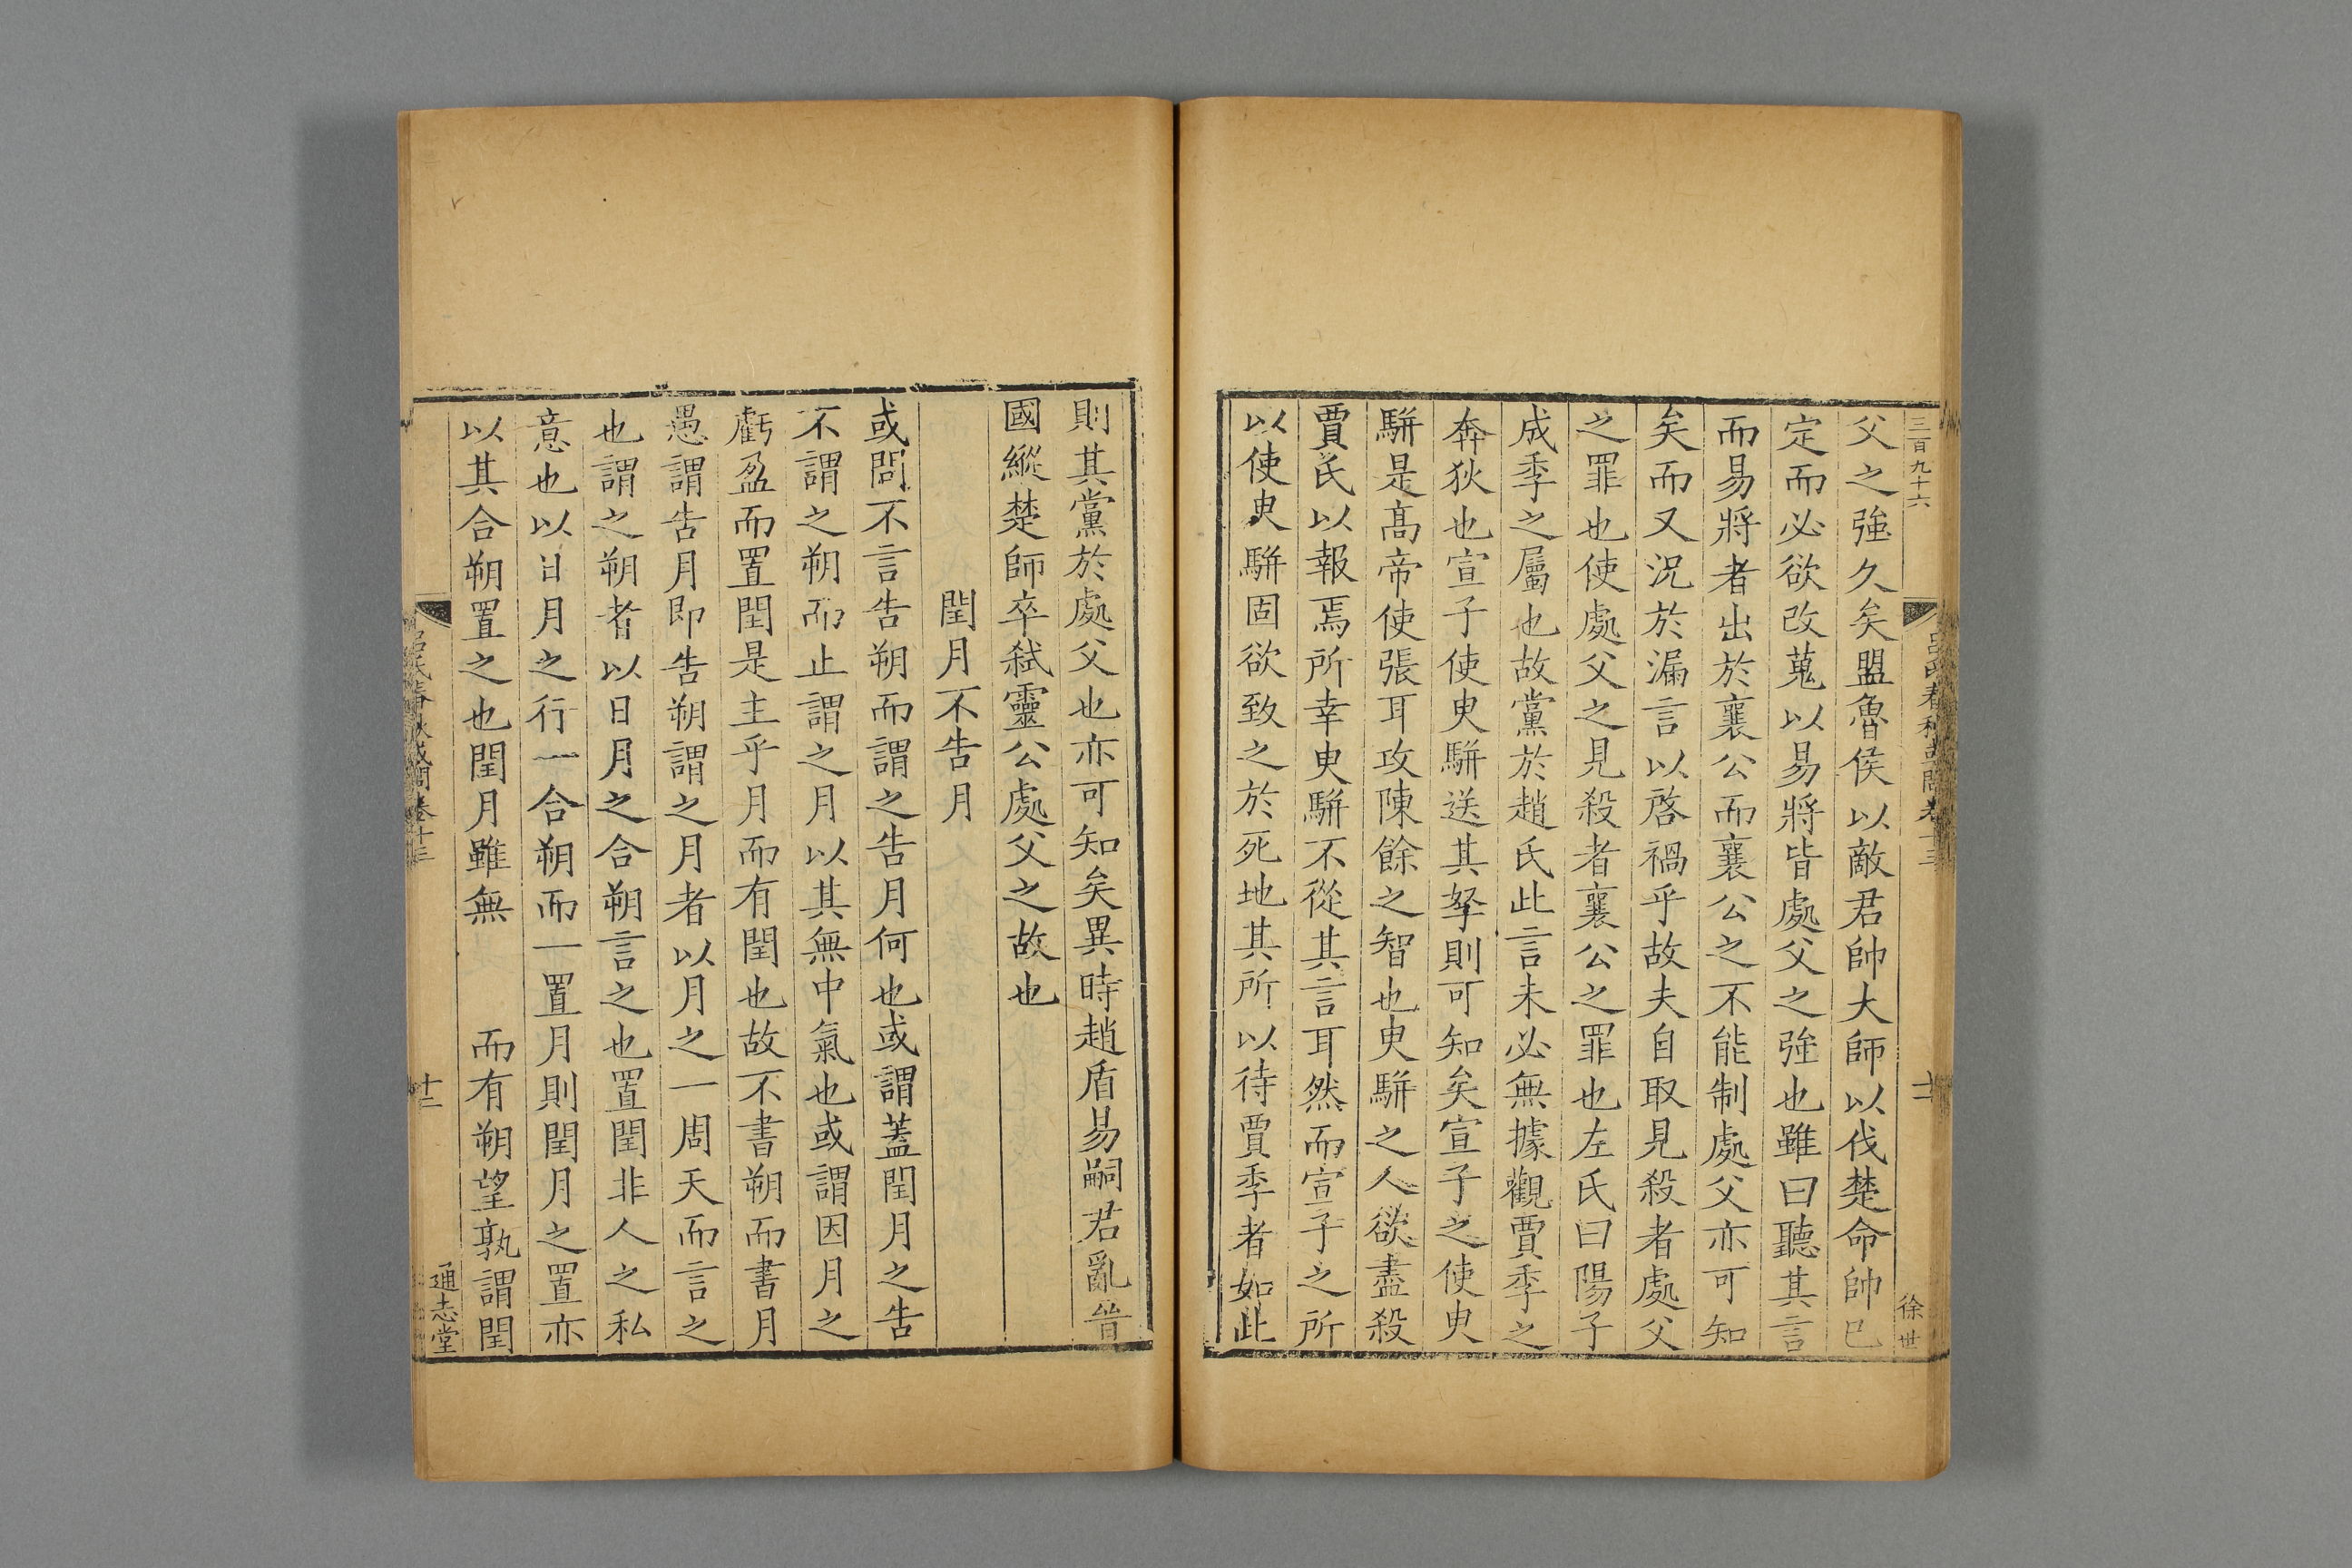 三百九十六
徐世
父之強久矣盟魯侯以敵君帥大師以伐楚命帥已
定而必欲改蒐以易將皆處父之強也雖曰聽其言
而易將者出於襄公而襄公之不能制處父亦可知
矣而又況於漏言以啓禍乎故夫自取見殺者處父
之罪也使處父之見殺者襄公之罪也左氏曰陽子
成季之屬也故黨於趙氏此言未必無據觀賈季之
奔狄也宣子使臾駢送其孥則可知矣宣子之使臾
駢是髙帝使張耳攻陳餘之智也臾駢之人欲盡殺
賈氏以報焉所幸臾駢不從其言耳然而宣子之所
以使臾駢固欲致之於死地其所以待賈季者如此
則其黨於處父也亦可知矣異時趙盾易嗣君亂晉
國縱楚師卒弑靈公處父之故也
閏月不告月
或問不言告朔而謂之告月何也或謂蓋閏月之告
不謂之朔而止謂之月以其無中氣也或謂因月之
虧盈而置閏是主乎月而有閏也故不書朔而書月
愚謂告月即告朔謂之月者以月之一周天而言之
也謂之朔者以日月之合朔言之也置閏非人之私
意也以日月之行一合朔而一置月則閏月之置亦
以其合朔置之也閏月雖無而有朔望孰謂閏
呂氏春秋或問卷十三
十二
通志堂